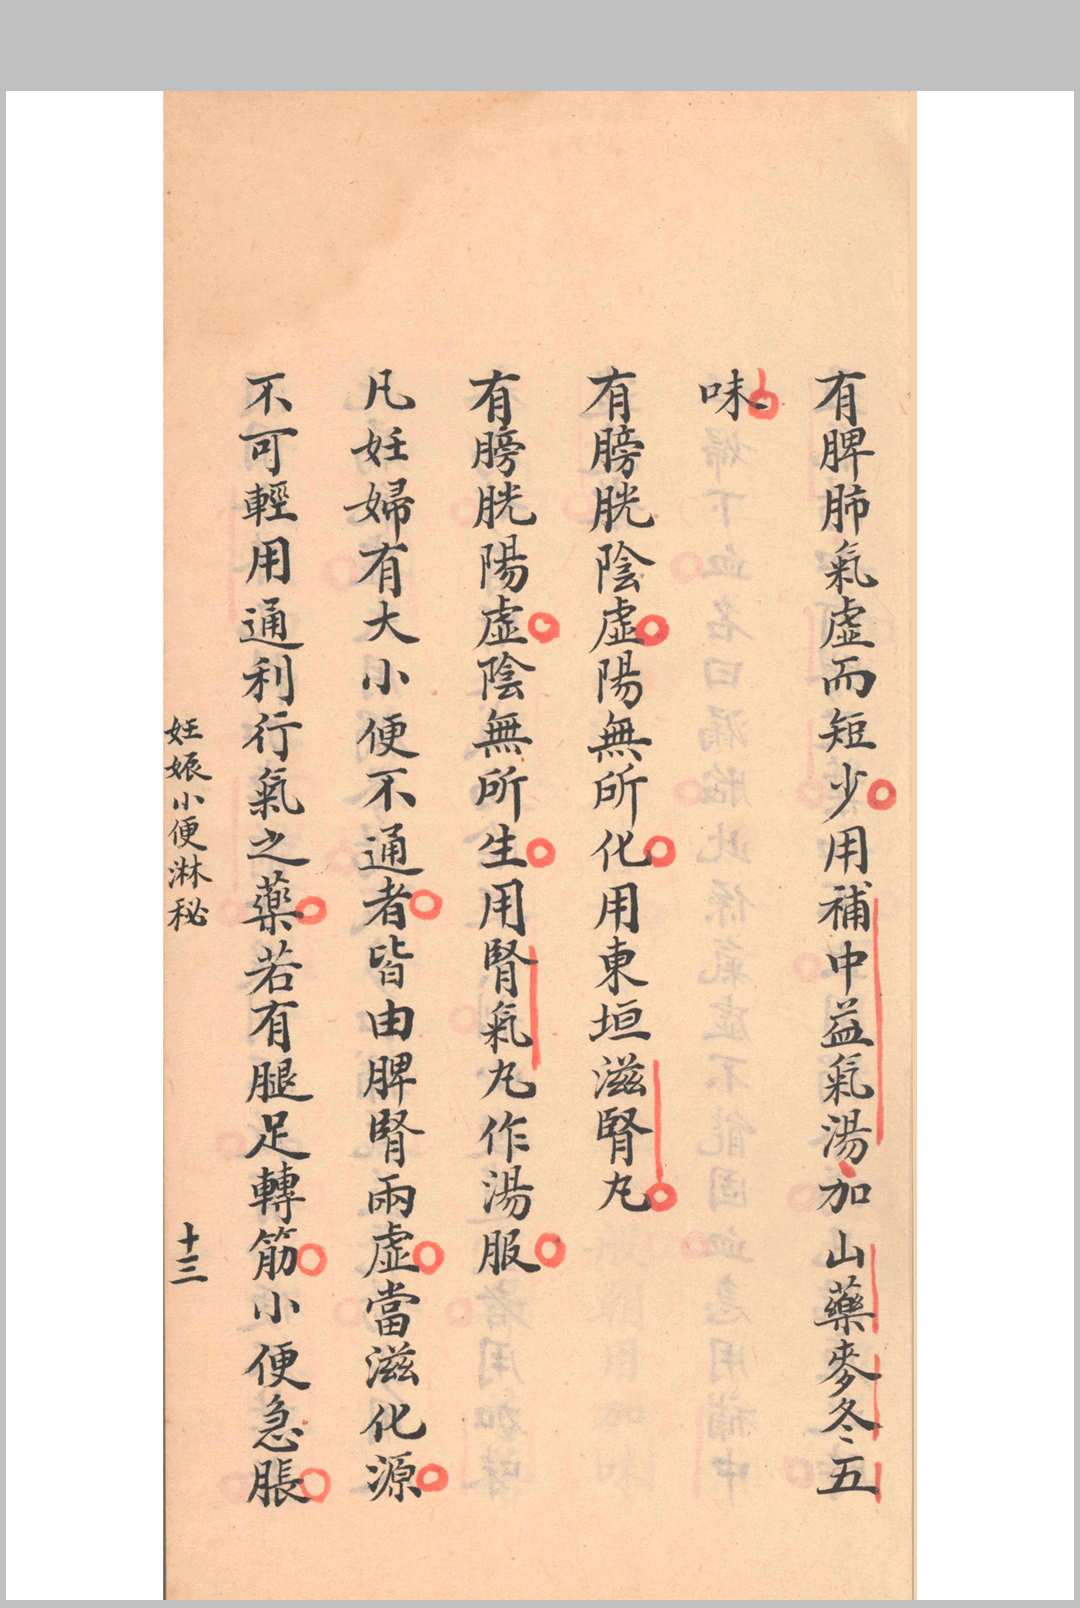 有脾肺氣虛而短少用補中益氣湯加山藥麥冬五
味
有膀胱陰虛陽無所化用東垣滋腎丸
有膀胱陽虛陰無所生用腎氣丸作湯服
凡妊婦有大小便不通者皆由脾腎兩虛當滋化源
不可輕用通利行氣之藥若有腿足轉筋小便急脹
妊娠小便淋秘
十三